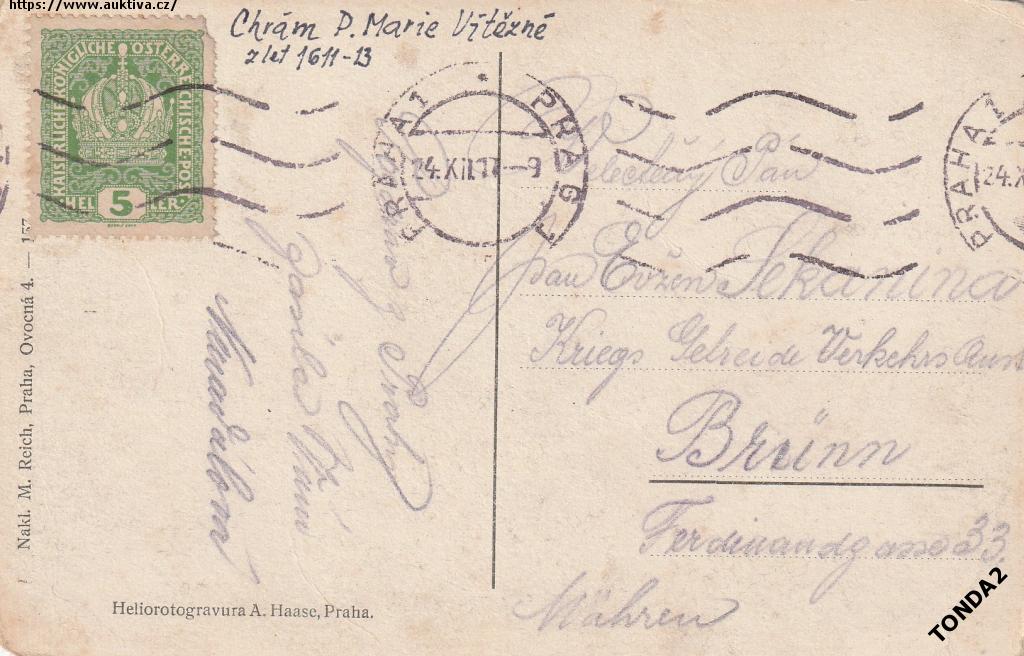 https://www.auktiva.cz/
Chrám P. Marie Vítězné
z let 1611-13
KAISERLICHE KÖNIGLICHE ÖSTERREICHISCHE POST
HELLER 5
PRAHA 1 PRAG 1
24.XII.17-9
PRAHA 1
24.X
Velectěný Pán
pan Evžen Sekanina
Kriegs Getreide Verkehrs Anst
Brünn
Ferdinandgasse 33.
Mähren
z Prahy
Nakl. M. Reich, Praha, Ovocná 4. — 157
Heliorotogravura A. Haase, Praha.
TONDA2